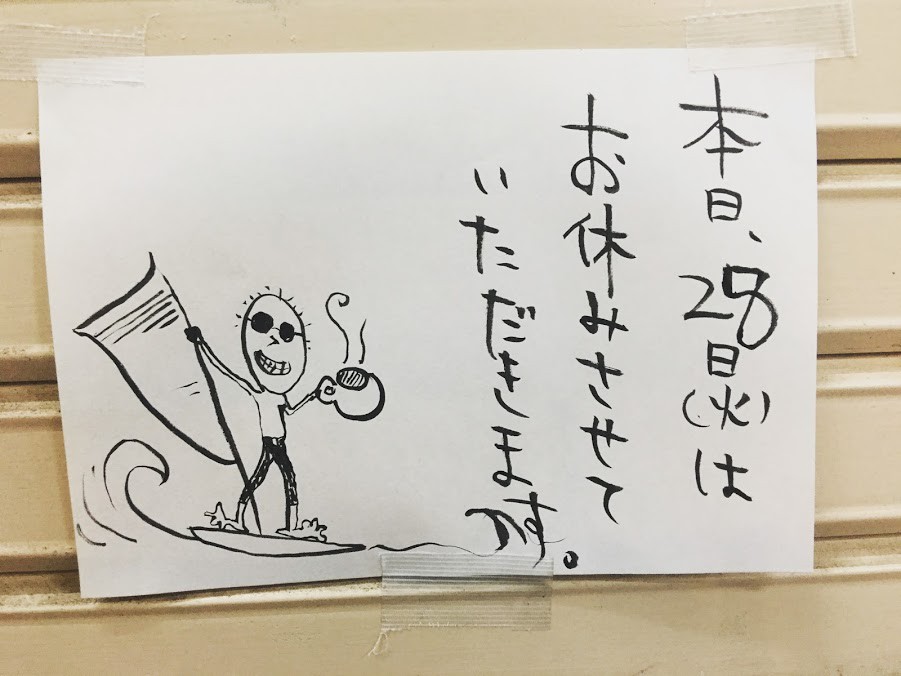 本日、28日(火)は
お休みさせて
いただきます。